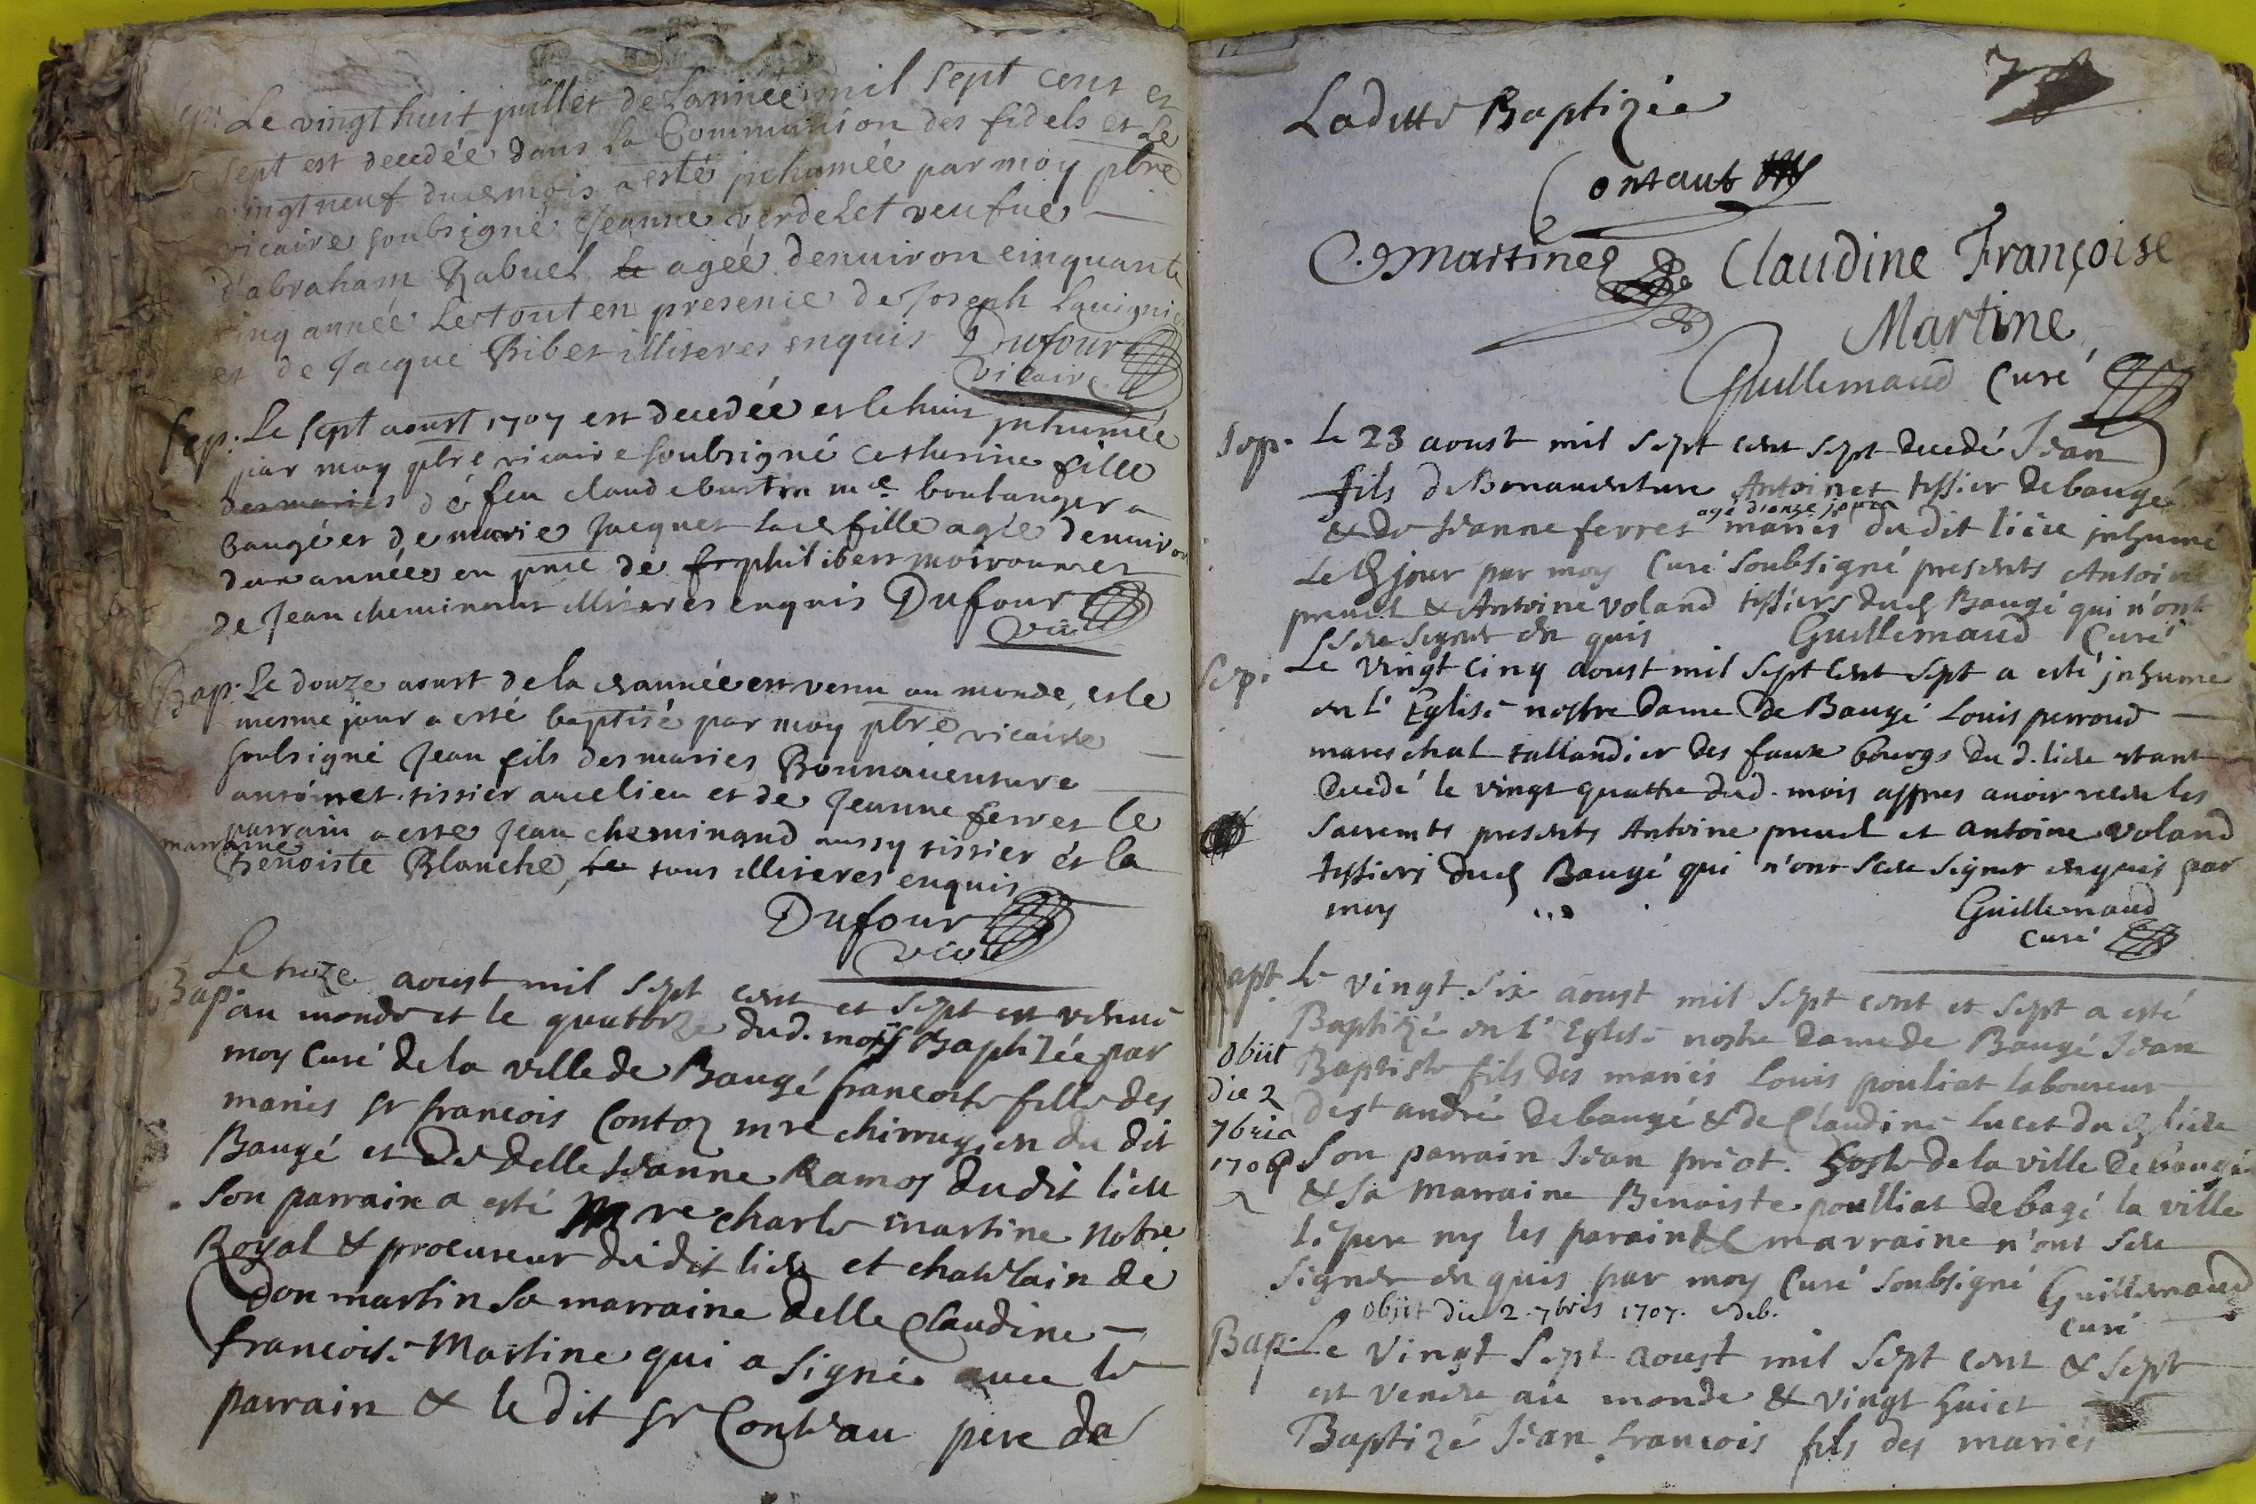 Le vingt huit juillet de Lannée mil sept cent et
sept est decedée dans la Communion des fidels et Le
vingt neuf du mois a esté inhumée par moy pbre
vicaire soubsigné Jeanne verdelet veufue
d'abraham Rabuel agée denuiron cinquante
cinq année Le tout en presence de Joseph Lauigni
et de Jacque Ribet illiteres enquis Dufour
vicaire
Sep. Le sept aoust 1707 est decedée et le huit inhumée
par moy pbre vicaire soubsigné Catherine fille
des maries dé feu claude bustin me boulanger a
baugé et de marie Jacquet lad fille agée denuiron
deux années en pnce de philibert moiroux et
de Jean cheminant illiteres enquis Dufour
vic
Bap. Le douze aoust de la année est venu au monde, et le
mesme jour a esté baptisé par moy pbre vicaire
soubsigné Jean fils des maries Bonnauenture
antoinet tissier audlieu et de Jeanne ferret le
parrain a esté Jean cheminand aussy tissier et la
marraine
Benoiste Blanche, le tous illiteres enquis
Dufour
vic
Le treize aoust mil sept cent et sept est venue
Bap. au monde et le quatorze dud. mois Baptizée par
moy Curé de la ville de Baugé francoise fille des
maries sr francois Contoz mre chirrugien du dit
Baugé et de delle Jeanne Ramoz dudit lieu
son parrain a esté mre charle martine notre
Royal & procureur dudit lieu et chatelain de
don martin sa marraine delle Claudine
francoise Martine qui a signé auec le
parrain & le dit sr Conteau pere de
Laditte Baptizée
Contaut
C. Martine Claudine Françoise
Martine
Guillemaud Curé
Sep. Le 23 aoust mil sept cent sept decedé Jean
fils de Bonauenture Antoinet tessier de baugé
agé d'onze jours
& de Jeanne ferret mariés du dit lieu inhumé
Led jour par moy Curé soubsigné presents Antoine
preuel & Antoine voland tessiers dud Baugé qui n'ont
sceu signer enquis Guillemaud Curé
Sep. Le vingt cinq aoust mil sept cent sept a esté inhume
en l'Eglise nostre dame de Baugé Louis perroud
mareschal tallandier des faux bourgs du d. lieu estant
decedé le vingt quattre dud. mois appres auoir receu les
sacremts presents Antoine preuel et antoine voland
tessiers dud Baugé qui n'ont sceu signer enquis par
moy Guillemaud
curé
Bapt. Le vingt six aoust mil sept cent et sept a esté
Baptizé en l'Eglise nostre dame de Baugé Jean
Baptiste fils des mariés Louis pouliat laboureur
de st andré de baugé & de Claudine lucet dud lieu
Son parrain Jean priot. hoste de la ville de baugé
& sa marraine Benoiste poulliat de bagé la ville
le pere ny les parain & marraine n'ont sceu
signer enquis par moy Curé soubsigné Guillemaud
curé
Obiit
die 2
7bris
1707
Obiit die 2. 7bris 1707. deb.
Bap. Le Vingt sept aoust mil sept cent & sept
est venue au monde & vingt huict
Baptizé Jean francois fils des mariés